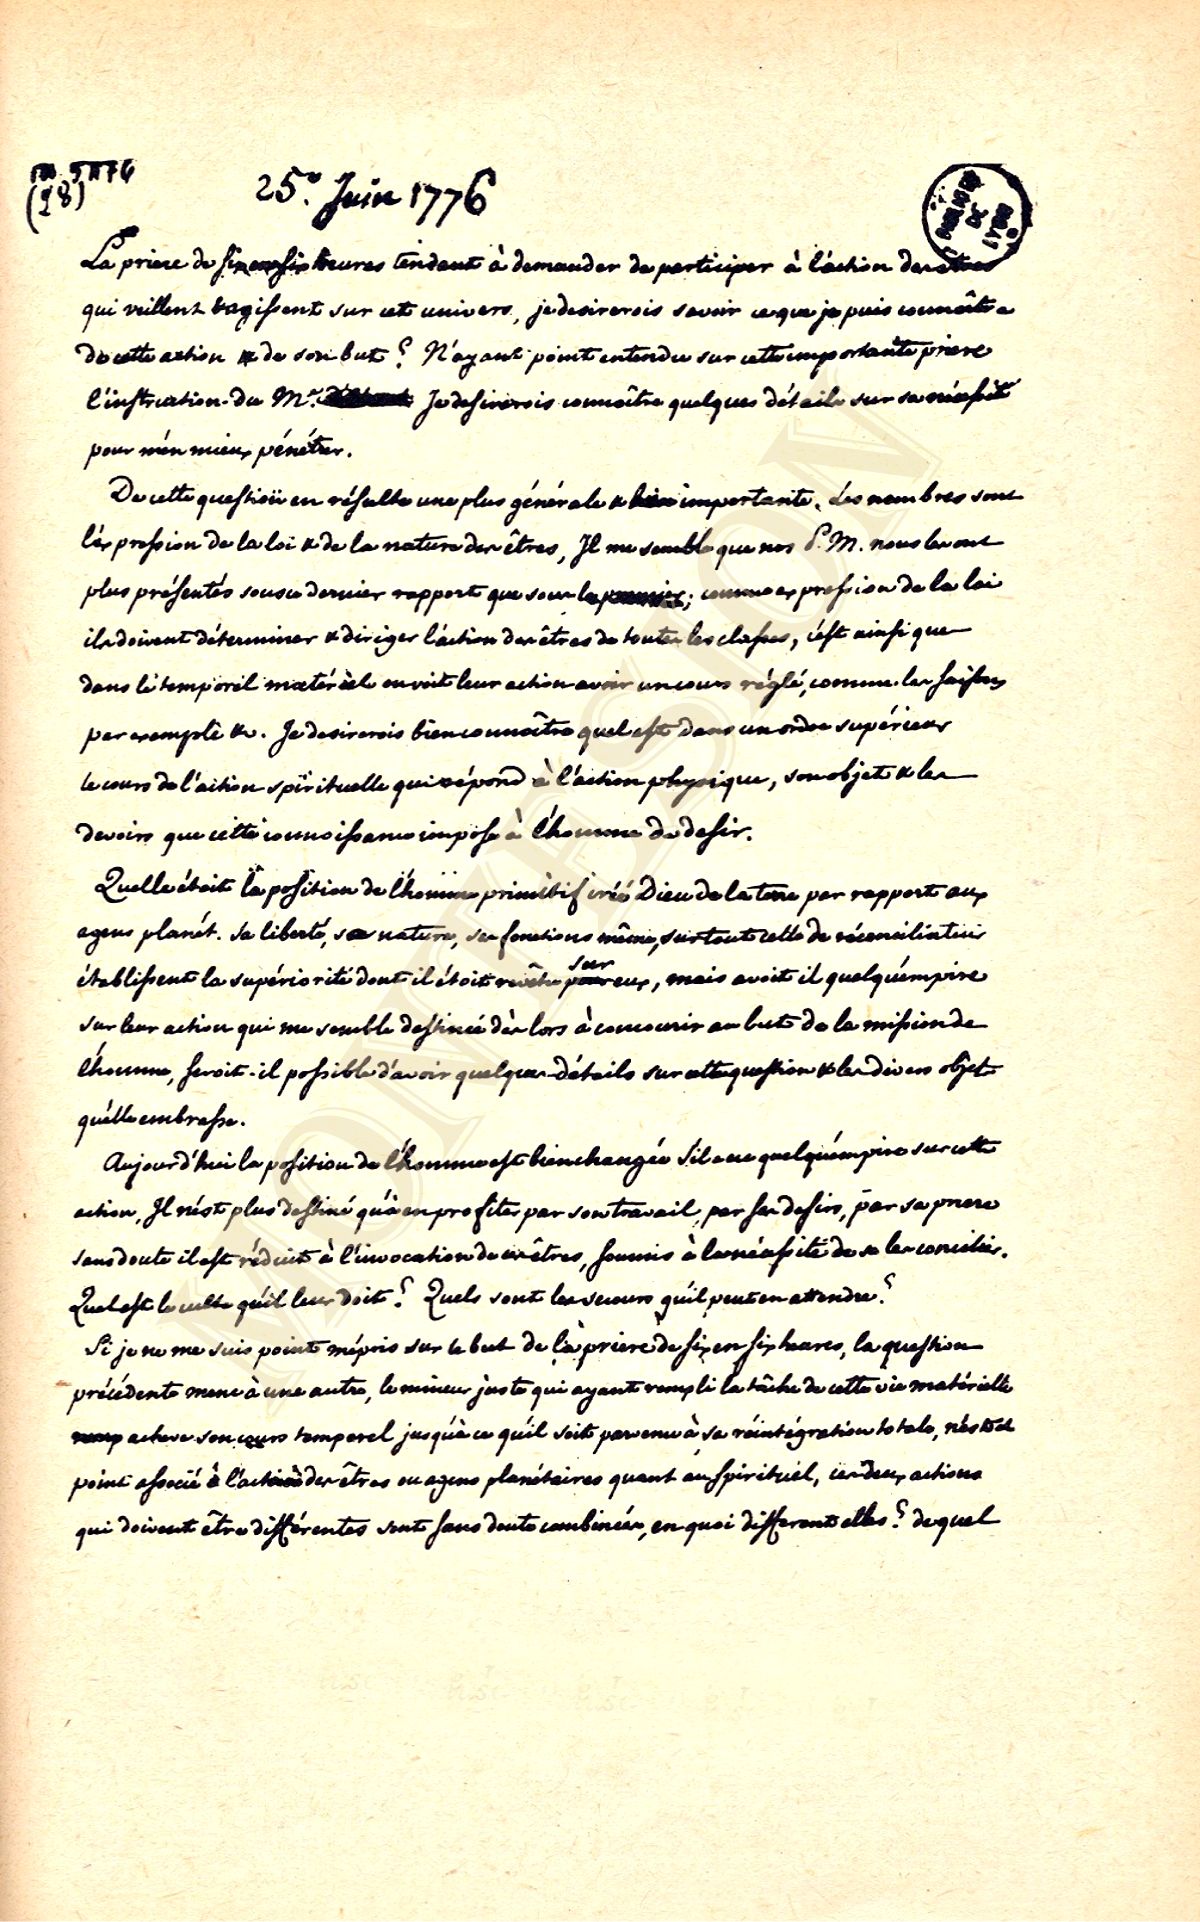 ms 5476
(28)
25e. Juin 1776
La priere de six en six heures tendant à demander de participer à l'action des êtres
qui veillent & agissent sur cet univers, je desirerois savoir ce que je puis connoître
de cette action & de son but? N'ayant point entendu sur cette importante priere
l'instruction du Mr. Je desirerois connoître quelques détails sur sa nécessité
pour m'en mieux pénétrer.
De cette question en résulte une plus générale & bien importante. Les nombres sont
l'expression de la loi & de la nature des êtres, Il me semble que nos P. M. nous les ont
plus présentés sous ce dernier rapport que sous le premier; comme expression de la loi
ils doivent déterminer & diriger l'action des êtres de toutes les classes, c'est ainsi que
dans le temporel matériel on voit leur action avoir un cours réglé, comme les saisons
par exemple &c. Je desirerois bien connoître quel est dans un ordre supérieur
le cours de l'action spirituelle qui répond à l'action physique, son objet & les
devoirs que cette connoissance impose à l'homme de desir.
Quelle étoit la position de l'homme primitif créé Dieu de la terre par rapport aux
agens planét. sa liberté, sa nature, ses fonctions même, surtout celle de réconciliateur
établissent la supériorité dont il étoit revêtu sur eux, mais avoit il quelqu'empire
sur leur action qui me semble destinée dès lors à concourir au but de la mission de
l'homme, seroit-il possible d'avoir quelques détails sur cette question & les divers objets
qu'elle embrasse.
Aujourd'hui la position de l'homme est bien changée S'il a eu quelqu'empire sur cette
action, Il n'est plus destiné qu'à en profiter par son travail, par ses desirs, par sa priere
sans doute il est réduit à l'invocation de ces êtres, soumis à la nécessité de se les concilier.
Quel est le culte qu'il leur doit? Quels sont les secours qu'il peut en attendre?
Si je ne me suis point mépris sur le but de la priere de six en six heures, la question
précédente mene à une autre, le mineur juste qui ayant rempli la tâche de cette vie matérielle
acheve son cours temporel jusqu'à ce qu'il soit parvenu à sa réintégration totale, n'est il
point associé à l'action des êtres ou agens planétaires quant au spirituel, ces deux actions
qui doivent être différentes sont sans doute combinées, en quoi different elles? de quel